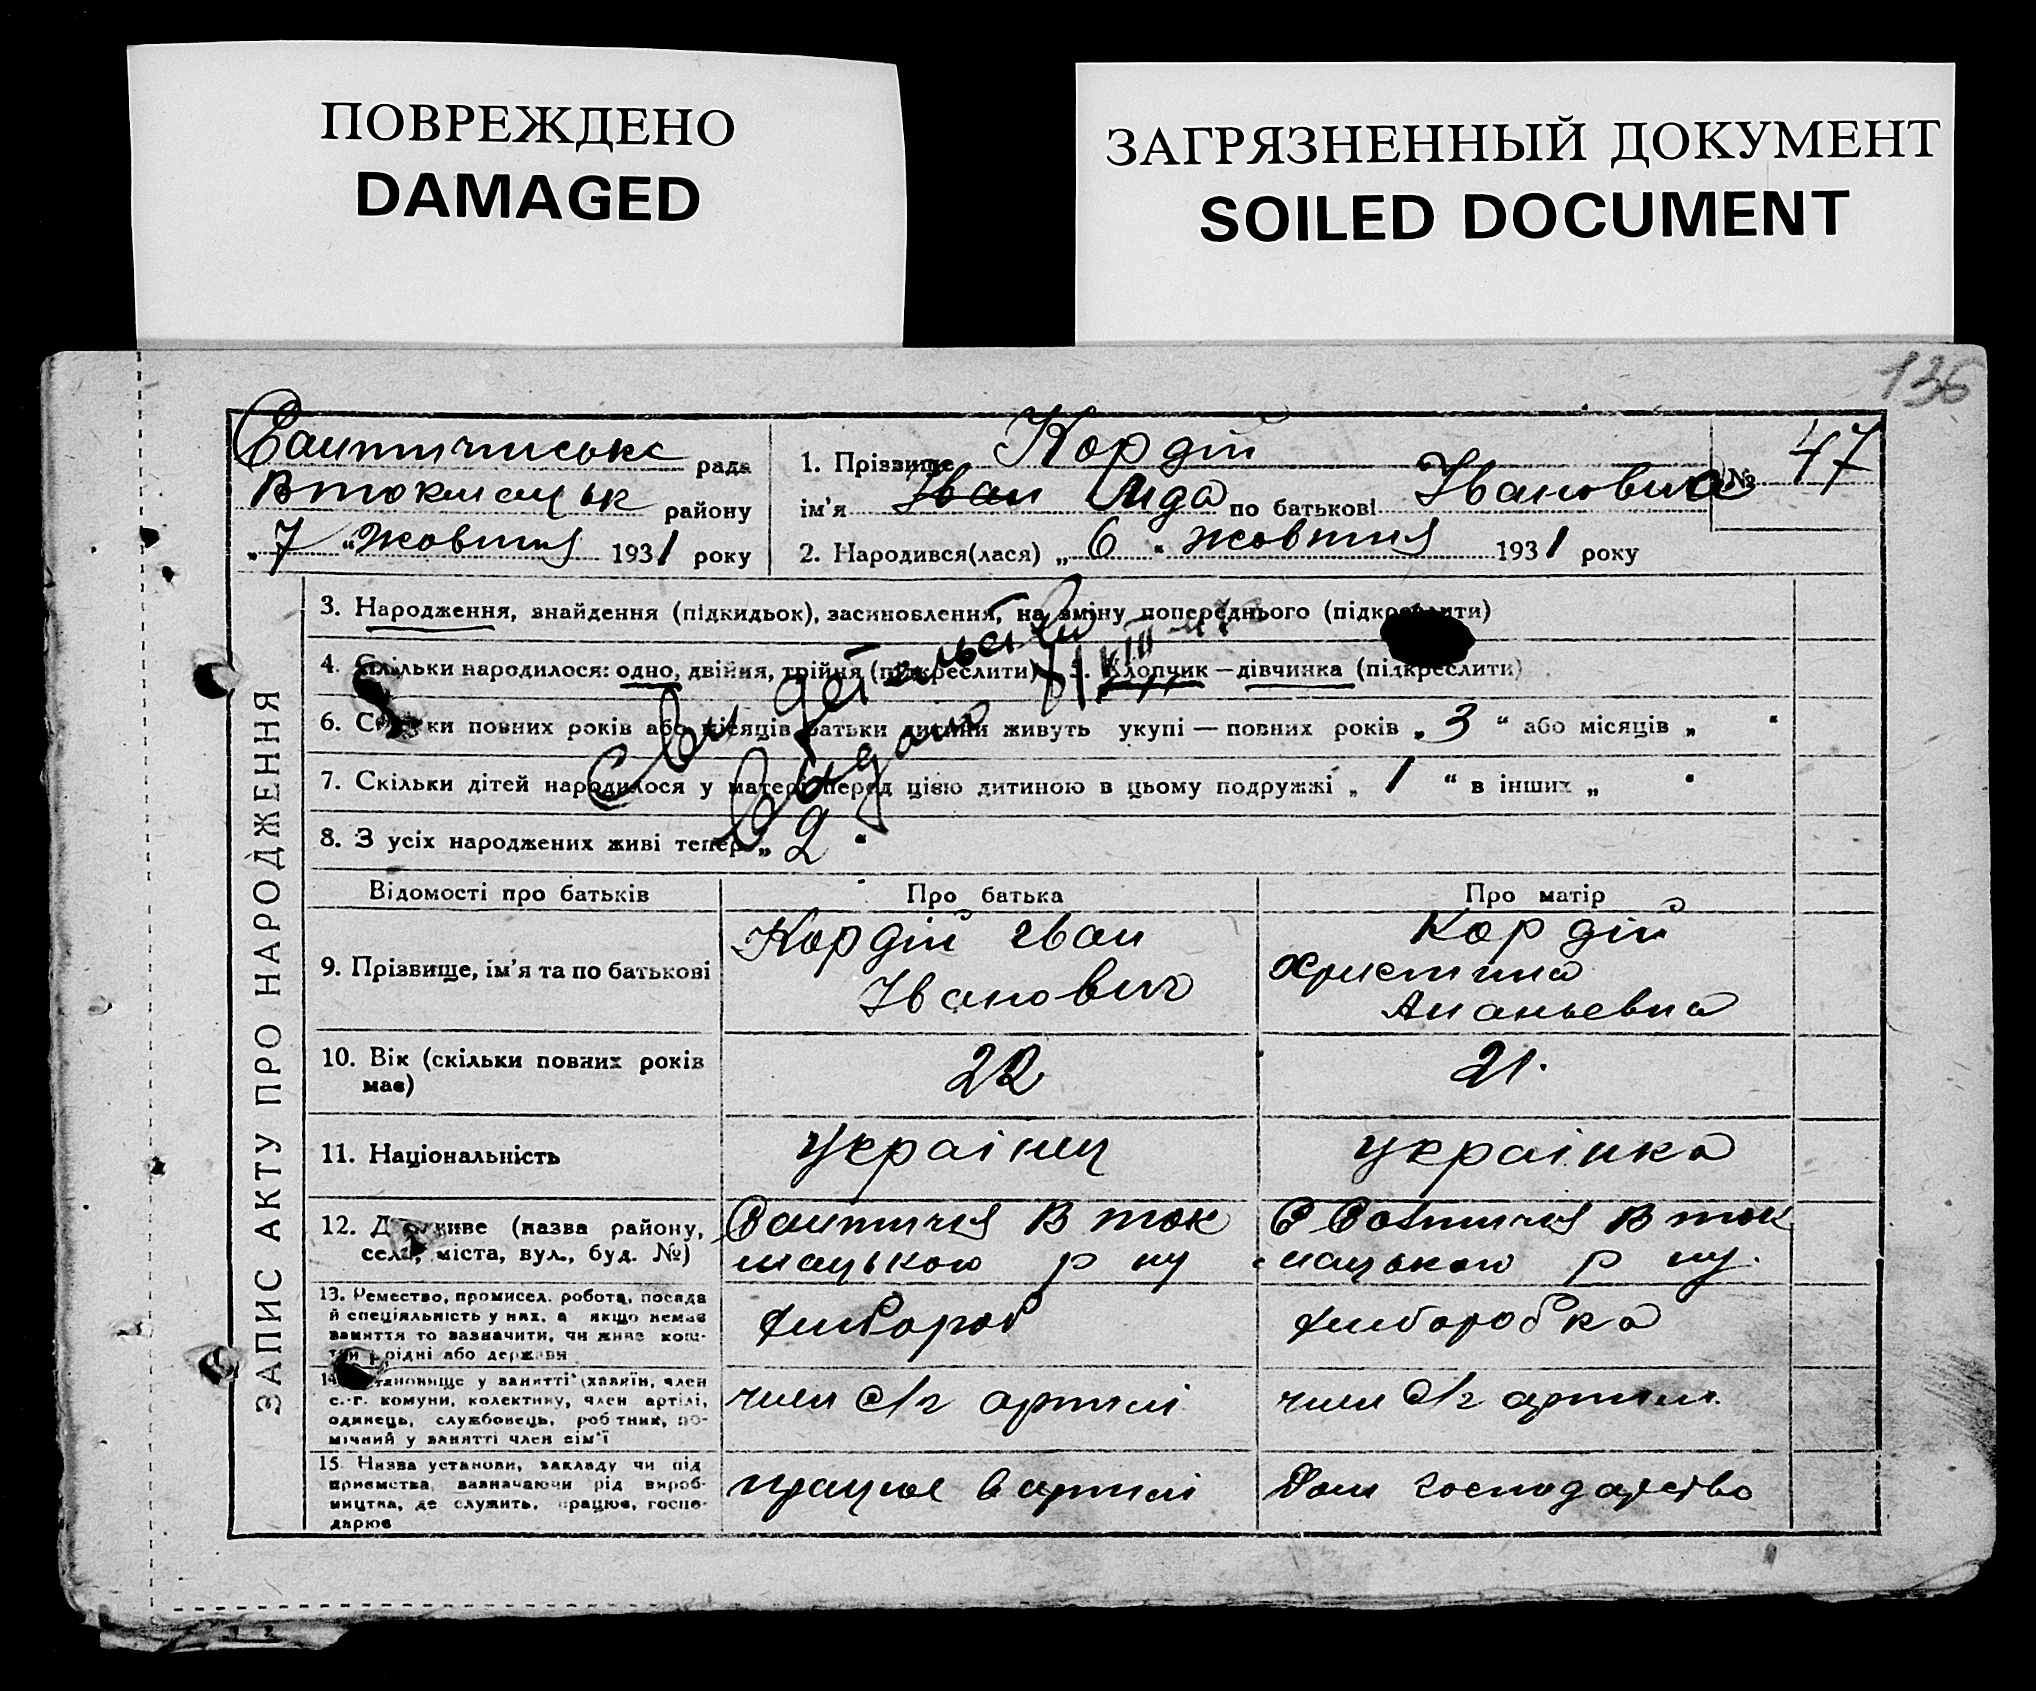 ПОВРЕЖДЕНО
DAMAGED
ЗАГРЯЗНЕННЫЙ ДОКУМЕНТ
SOILED DOCUMENT
136
рада
Втокмацьк району
„7“ жовтня 1931 року
1. Прізвище Кордій
ім'я Іван Ліда по батькові Івановна
№ 47
2. Народився(лася) „6“ жовтня 1931 року
ЗАПИС АКТУ ПРО НАРОДЖЕННЯ
3. Народження, знайдення (підкидьок), засиновлення, на зміну попереднього (підкреслити)
4. Скільки народилося: одно, двійня, трійня (підкреслити) 5. Хлопчик — дівчинка (підкреслити)
6. Скільки повних років або місяців батьки дитини живуть укупі — повних років „3“ або місяців „ “
7. Скільки дітей народилося у матері перед цією дитиною в цьому подружжі „1“ в інших „ “
8. З усіх народжених живі тепер „2“
Відомості про батьків
Про батька
Про матір
9. Прізвище, ім'я та по батькові
Кордій Іван
Іванович
Кордій
Христина
Ананьевна
10. Вік (скільки повних років
має)
22
21.
11. Національність
Українец
Українка
12. Де живе (назва району,
села, міста, вул., буд. №)
В ток
мацького р ну
В ток
мацького р ну.
13. Ремество, промисел, робота, посада
й спеціяльність у них, а якщо немає
заняття то зазначити, чи живе кош-
том рідні або держави
хлібороб
хліборобка
14. Становище у занятті (хазяїн, член
с.-г. комуни, колективу, член артілі,
одинець, службовець, робітник, по-
мічний у занятті член сім'ї
член с/г артилі
член с/г артили.
15. Назва установи, закладу чи під
приємства, зазначаючи рід вироб-
ництва, де служить, працює, госпо-
дарює
працює в артилі
Дом господарство
Свидетельство
выдано